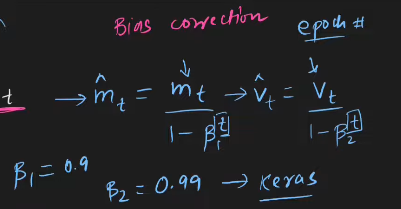 Bias correction epoch #
t → m̂ₜ = mₜ / (1 - β₁ᵗ) → v̂ₜ = vₜ / (1 - β₂ᵗ)
β₁ = 0.9
β₂ = 0.99 → Keras